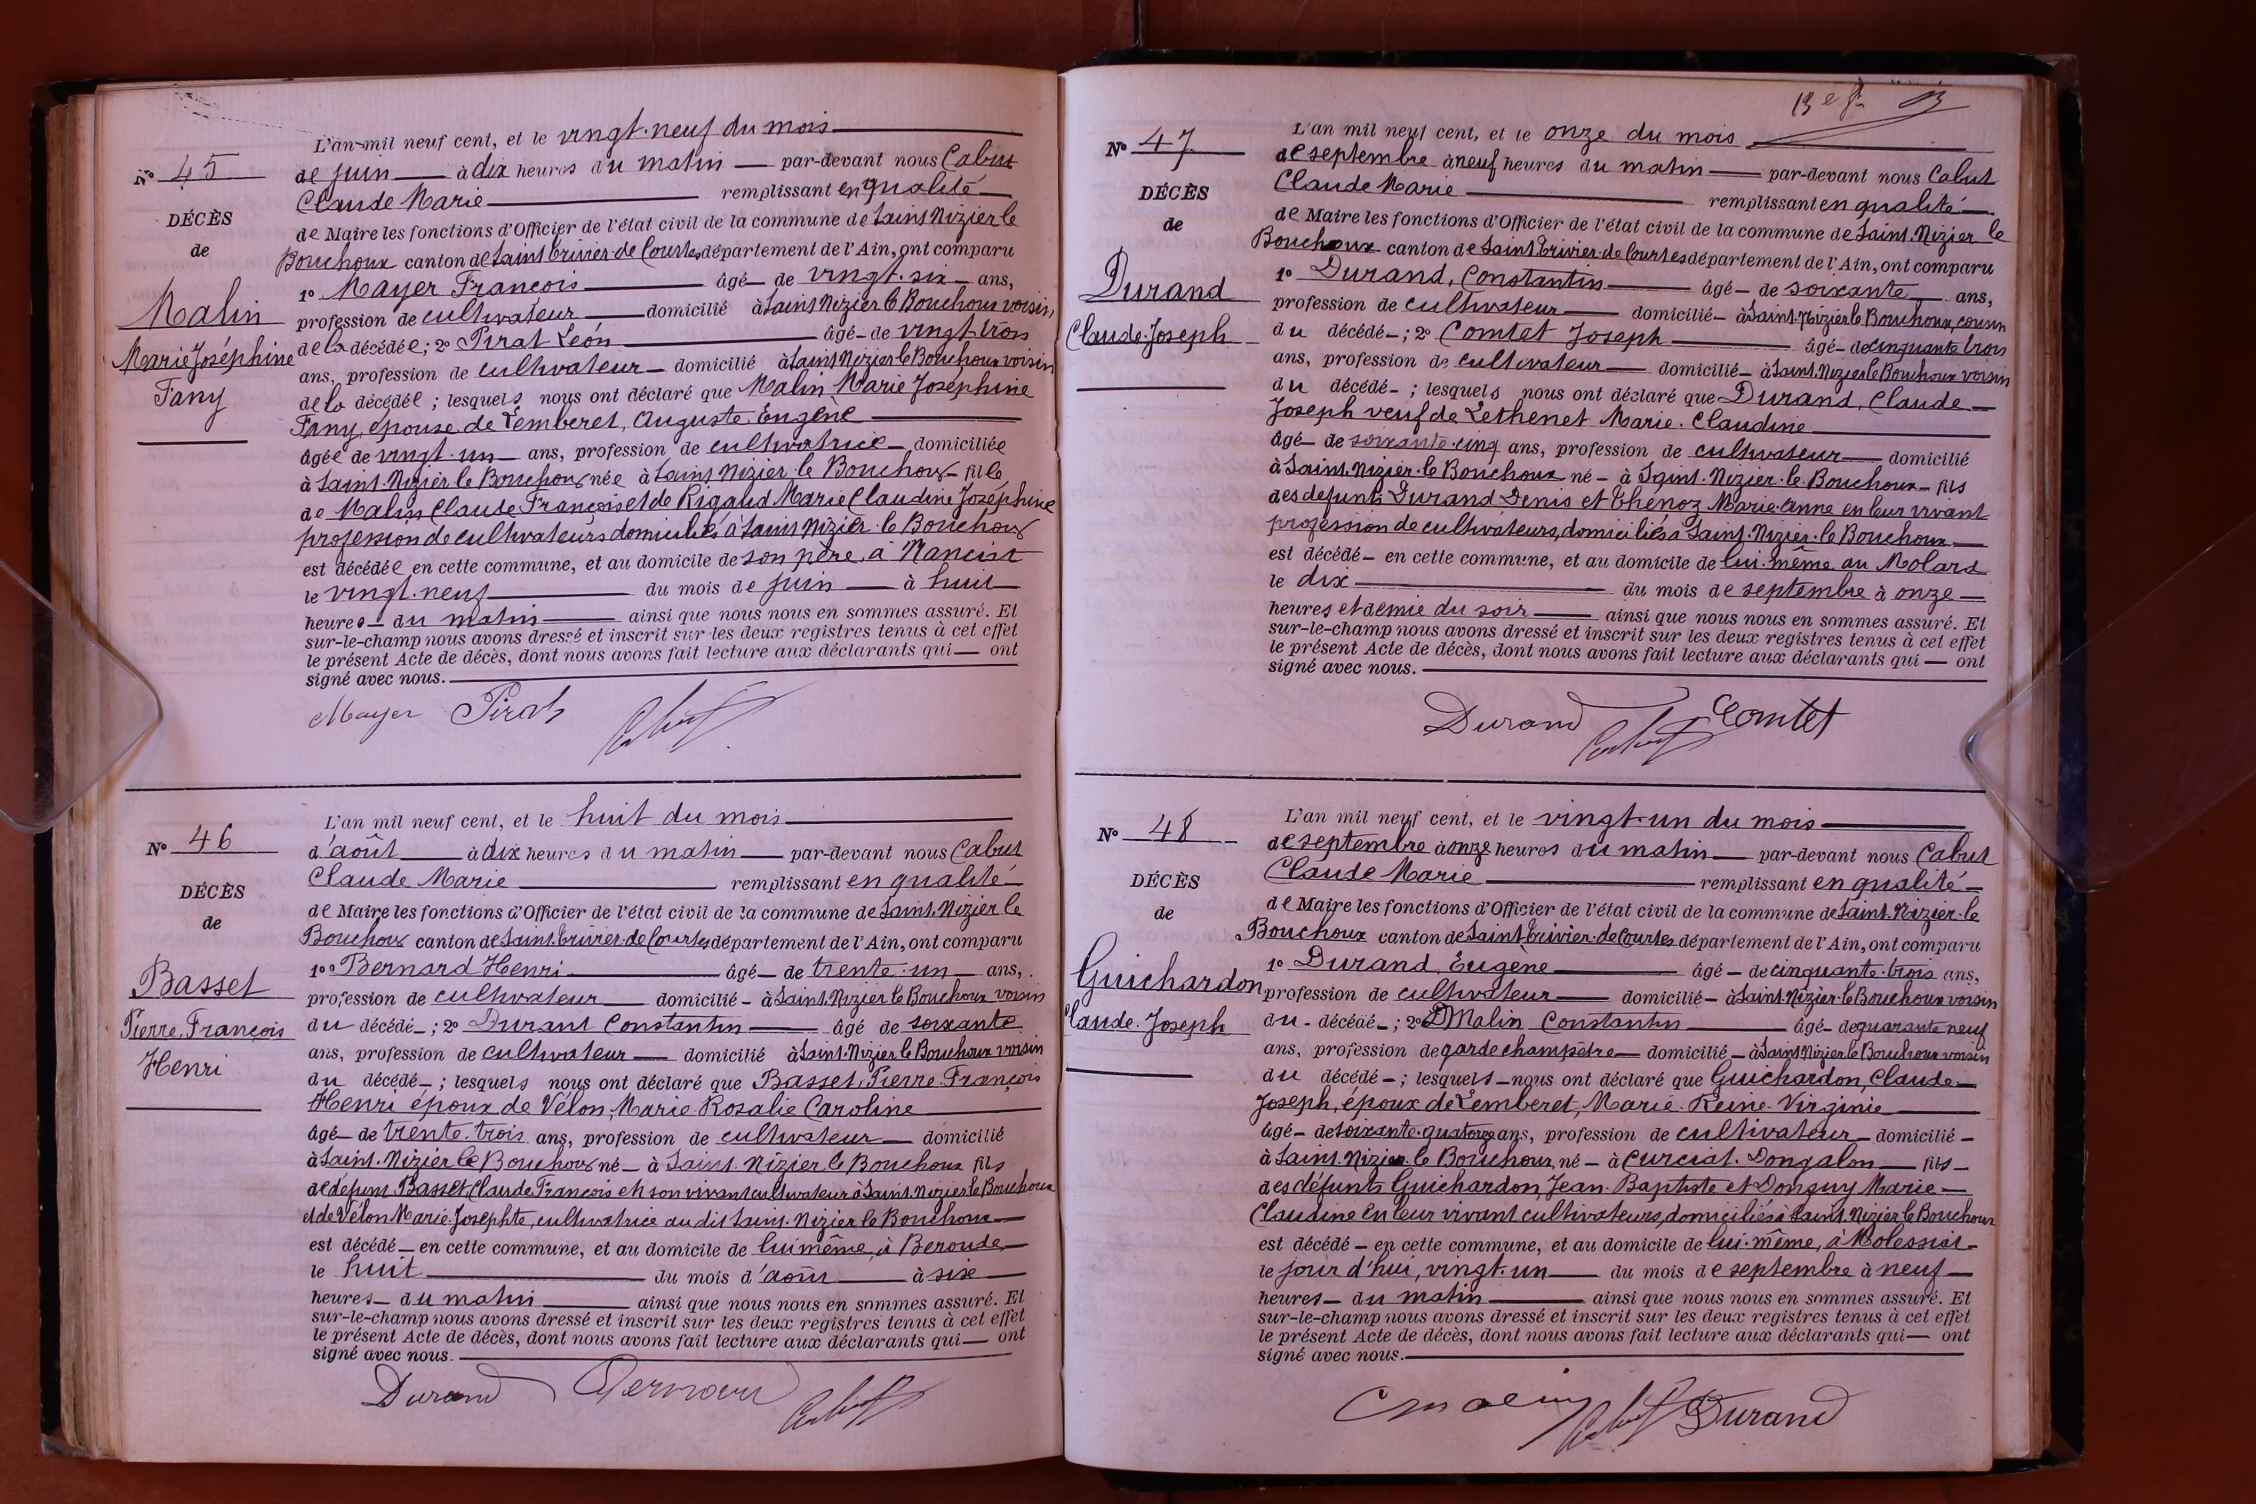 L'an mil neuf cent, et le vingt-neuf du mois
N° 45
de juin à dix heures du matin par-devant nous Cabut
Claude Marie remplissant en qualité
DÉCÈS
de Maire les fonctions d'Officier de l'état civil de la commune de Saint Nizier le
de
Bouchoux canton de Saint Trivier de Courtes département de l'Ain, ont comparu
1° Mayer François âgé de vingt-six ans,
Malin
profession de cultivateur domicilié à Saint Nizier le Bouchoux voisin
de la décédée; 2° Pirat Léon âgé de vingt-trois
Marie Joséphine
ans, profession de cultivateur domicilié à Saint Nizier le Bouchoux voisin
Fany
de la décédée; lesquels nous ont déclaré que Malin Marie Joséphine
Fany, épouse de Lemberet, Auguste Eugène
âgée de vingt-un ans, profession de cultivatrice domiciliée
à Saint-Nizier le Bouchoux née à Saint Nizier le Bouchoux fille
de Malin Claude François et de Rigaud Marie Claudine Joséphine
profession de cultivateurs domiciliés à Saint Nizier le Bouchoux
est décédée en cette commune, et au domicile de son père, à Manciat
le vingt-neuf du mois de juin à huit
heures du matin ainsi que nous nous en sommes assuré. Et
sur-le-champ nous avons dressé et inscrit sur les deux registres tenus à cet effet
le présent Acte de décès, dont nous avons fait lecture aux déclarants qui ont
signé avec nous.
Mayer Pirat Cabut
L'an mil neuf cent, et le huit du mois
N° 46
d'août à dix heures du matin par-devant nous Cabut
Claude Marie remplissant en qualité
DÉCÈS
de Maire les fonctions d'Officier de l'état civil de la commune de Saint-Nizier le
de
Bouchoux canton de Saint Trivier de Courtes département de l'Ain, ont comparu
1° Bernard Henri âgé de trente-un ans,
Basset
profession de cultivateur domicilié à Saint Nizier le Bouchoux voisin
Pierre François
du décédé; 2° Durant Constantin âgé de soixante
ans, profession de cultivateur domicilié à Saint-Nizier le Bouchoux voisin
Henri
du décédé; lesquels nous ont déclaré que Basset, Pierre François
Henri époux de Vélon, Marie Rosalie Caroline
âgé de trente-trois ans, profession de cultivateur domicilié
à Saint-Nizier le Bouchoux né à Saint-Nizier le Bouchoux fils
de défunt Basset Claude François en son vivant cultivateur à Saint Nizier le Bouchoux
et de Vélon Marie Josephte, cultivatrice au dit Saint-Nizier le Bouchoux
est décédé en cette commune, et au domicile de lui même, à Beroude
le huit du mois d'août à six
heures du matin ainsi que nous nous en sommes assuré. Et
sur-le-champ nous avons dressé et inscrit sur les deux registres tenus à cet effet
le présent Acte de décès, dont nous avons fait lecture aux déclarants qui ont
signé avec nous.
Durand Bernard Cabut
13
L'an mil neuf cent, et le onze du mois
N° 47
de septembre à neuf heures du matin par-devant nous Cabut
Claude Marie remplissant en qualité
DÉCÈS
de Maire les fonctions d'Officier de l'état civil de la commune de Saint-Nizier le
de
Bouchoux canton de Saint Trivier de Courtes département de l'Ain, ont comparu
1° Durand, Constantin âgé de soixante ans,
Durand
profession de cultivateur domicilié à Saint-Nizier le Bouchoux, cousin
Claude Joseph
du décédé; 2° Comtet Joseph âgé de cinquante trois
ans, profession de cultivateur domicilié à Saint-Nizier le Bouchoux voisin
du décédé; lesquels nous ont déclaré que Durand, Claude
Joseph veuf de Lethenet Marie-Claudine
âgé de soixante-cinq ans, profession de cultivateur domicilié
à Saint-Nizier-le Bouchoux né à Saint-Nizier-le-Bouchoux fils
des defunts Durand Denis et Thénoz Marie-Anne en leur vivant
profession de cultivateurs, domiciliés à Saint-Nizier-le Bouchoux
est décédé en cette commune, et au domicile de lui-même au Molard
le dix du mois de septembre à onze
heures et demie du soir ainsi que nous nous en sommes assuré. Et
sur-le-champ nous avons dressé et inscrit sur les deux registres tenus à cet effet
le présent Acte de décès, dont nous avons fait lecture aux déclarants qui ont
signé avec nous.
Durand Cabut Comtet
L'an mil neuf cent, et le vingt-un du mois
N° 48
de septembre à onze heures du matin par-devant nous Cabut
Claude Marie remplissant en qualité
DÉCÈS
de Maire les fonctions d'Officier de l'état civil de la commune de Saint-Nizier-le
de
Bouchoux canton de Saint-Trivier-de Courtes département de l'Ain, ont comparu
1° Durand, Eugène âgé de cinquante-trois ans,
Guichardon
profession de cultivateur domicilié à Saint-Nizier-le Bouchoux voisin
Claude-Joseph
du décédé; 2° Malin Constantin âgé de quarante neuf
ans, profession de garde champêtre domicilié à Saint Nizier le Bouchoux voisin
du décédé; lesquels nous ont déclaré que Guichardon, Claude
Joseph, époux de Lemberet, Marie-Reine-Virginie
âgé de soixante-quatorze ans, profession de cultivateur domicilié
à Saint-Nizier-le Bouchoux né à Curciat-Dongalon fils
des défunts Guichardon, Jean-Baptiste et Donguy Marie
Claudine en leur vivant cultivateurs, domiciliés à Saint-Nizier le Bouchoux
est décédé en cette commune, et au domicile de lui-même, à Molessiat
le jour d'hui, vingt-un du mois de septembre à neuf
heures du matin ainsi que nous nous en sommes assuré. Et
sur-le-champ nous avons dressé et inscrit sur les deux registres tenus à cet effet
le présent Acte de décès, dont nous avons fait lecture aux déclarants qui ont
signé avec nous.
C Malin Cabut Durand